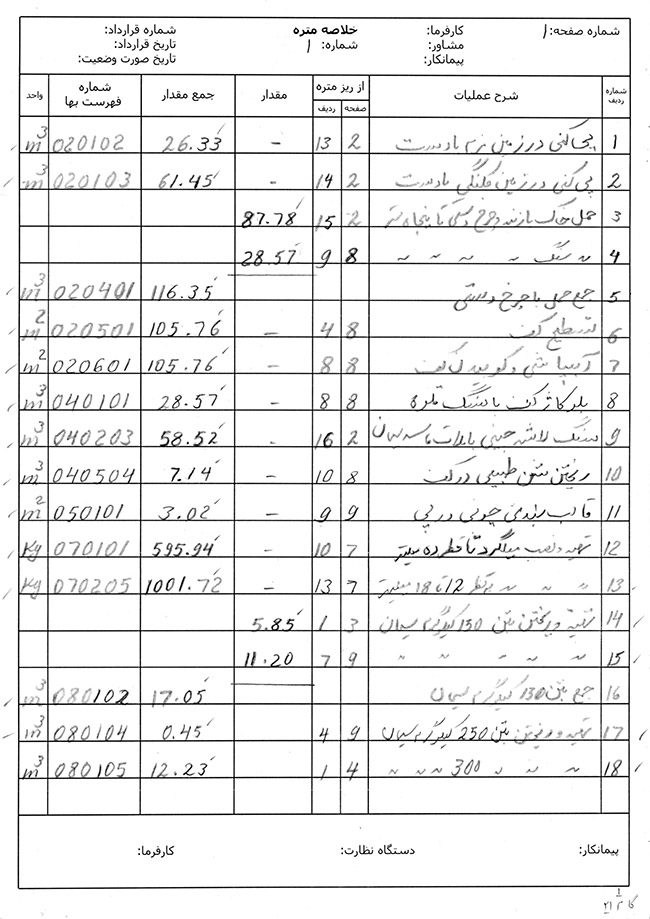 شماره صفحه: 1 کارفرما: خلاصه متره شماره قرارداد:
مشاور: شماره: 1 تاریخ قرارداد:
پیمانکار: تاریخ صورت وضعیت:
شماره ردیف شرح عملیات از ریز متره صفحه ردیف مقدار جمع مقدار شماره فهرست بها واحد
1 پی کنی در زمین نرم با دست 2 13 - 26.33 020102 m3
2 پی کنی در زمین کلنگی با دست 2 14 - 61.45 020103 m3
3 حمل خاک با زنبه و چرخ دستی تا پنجاه متر 2 15 87.78
4 〃 سنگ 〃 〃 〃 〃 8 9 28.57
5 جمع حمل با چرخ دستی 116.35 020401 m3
6 تسطیح کف 8 4 - 105.76 020501 m2
7 آبپاشی و کوبیدن کف 8 8 - 105.76 020601 m2
8 بلوکاژ کف با سنگ قلوه 8 8 - 28.57 040101 m3
9 سنگ لاشه چینی با ملات ماسه سیمان 2 16 - 58.52 040203 m3
10 ریختن شن طبیعی در کف 8 10 - 7.14 040504 m3
11 قالب بندی چوبی در پی 9 9 - 3.02 050101 m2
12 تهیه و نصب میلگرد تا قطر ده میلیمتر 7 10 - 595.94 070101 Kg
13 〃 〃 〃 به قطر 12 تا 18 میلیمتر 7 13 - 1001.72 070205 Kg
14 تهیه و ریختن بتن 150 کیلوگرم سیمان 3 1 5.85
15 〃 〃 〃 〃 〃 9 7 11.20
16 جمع بتن 150 کیلوگرم سیمان 17.05 080102 m3
17 تهیه و ریختن بتن 250 کیلوگرم سیمان 9 4 - 0.45 080104 m3
18 〃 〃 〃 300 〃 〃 〃 4 1 12.23 080105 m3
پیمانکار: دستگاه نظارت: کارفرما: